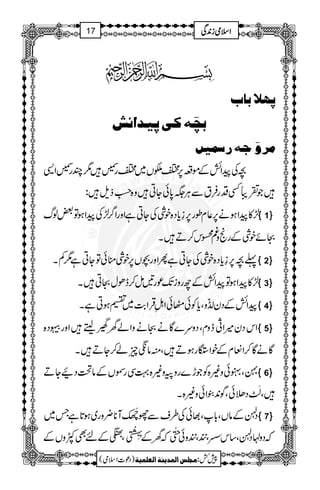 اسلامی زندگی
17
بِسْمِ اللہِ الرَّحْمٰنِ الرَّحِیْمِ
پھلا باب
بچّہ کی پیدائش
مروّجہ رسمیں
بچہ کی پیدائش کے موقعہ پر مختلف ملکوں میں مختلف رسمیں ہیں مگر چند رسمیں ایسی
ہیں جو تقریباً کسی قدر فرق سے ہر جگہ پائی جاتی ہیں وہ حسب ذیل ہیں:
{1} لڑکا پیدا ہونے پر عام طور پر زیادہ خوشی کی جاتی ہے اور اگر لڑکی پیدا ہو تو بعض لوگ
بجائے خوشی کے رنج و غم محسوس کرتے ہیں۔
{2} پہلے بچہ پر زیادہ خوشی کی جاتی ہے پھر اور بچوں پر خوشی منائی تو جاتی ہے مگر کم۔
{3} لڑکا پیدا ہو تو پیدائش کے چھ روز تک عورتیں مل کر ڈھول بجاتی ہیں۔
{4} پیدائش کے دن لڈو یا کوئی مٹھائی اہل قرابت میں تقسیم ہوتی ہے۔
{5} اس دن میراثی ڈوم، دوسرے گانے بجانے والے گھر گھیر لیتے ہیں اور بیہودہ
گانے گا کر انعام کے خواستگار ہوتے ہیں، منہ مانگی چیز لے کر جاتے ہیں۔
{6} بہن، بہنوئی وغیرہ کو جوڑے روپیہ وغیرہ بہت سی رسموں کے ماتحت دئیے جاتے
ہیں، لٹ دھلائی، گوند بنوائی وغیرہ۔
{7} دُلہن کے ماں، باپ، بھائی کی طرف سے چھوچھک آنا ضروری ہوتا ہے جس میں
کہ دولہا، دلہن، ساس، سسر، نند، نندوئی حتّٰی کہ گھر کے بہشتی، بھنگی کے لئے بھی کپڑوں کے
پیش کش: مجلس المدینۃ العلمیۃ (دعوتِ اسلامی)